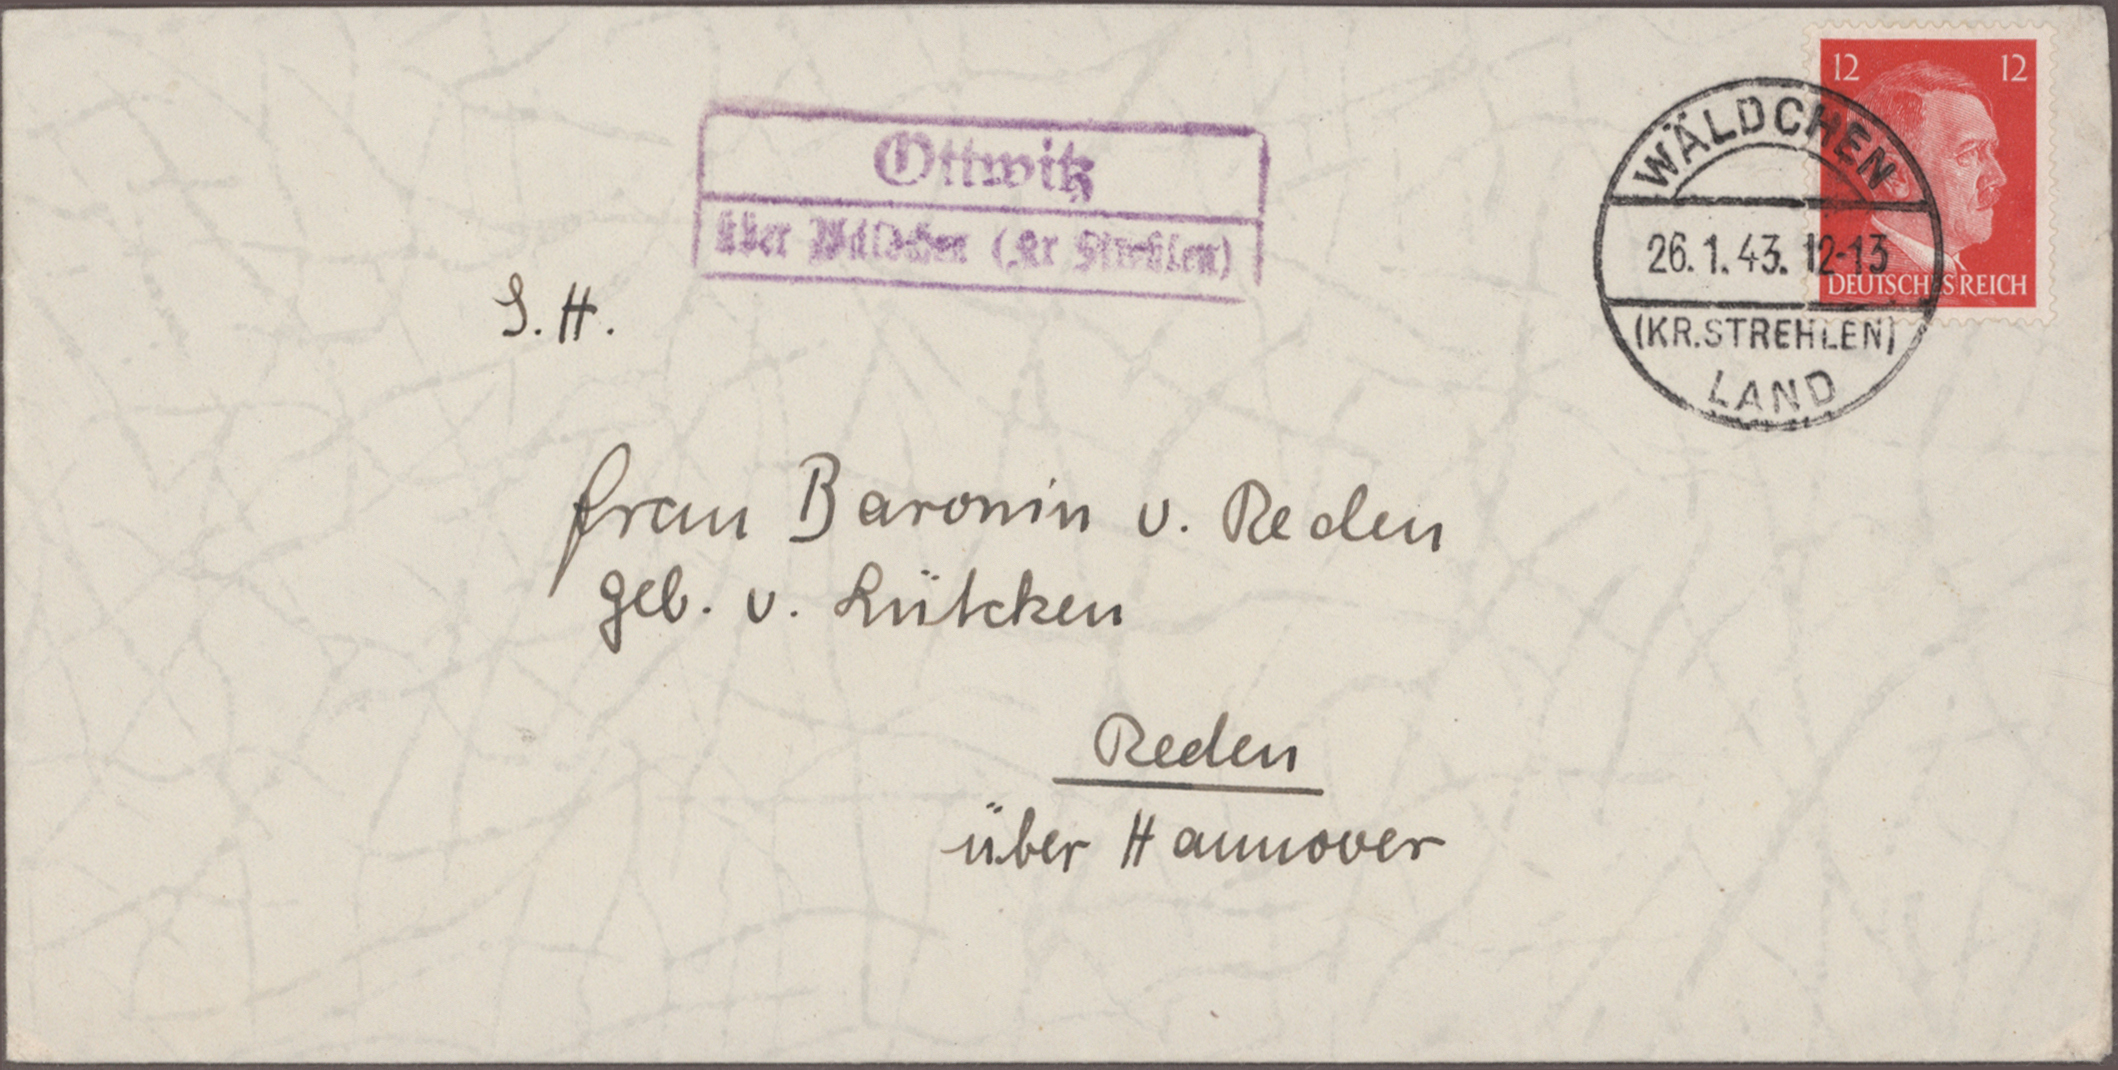 Ottwitz
über Wäldchen (Kr Strehlen)
12 12
DEUTSCHES REICH
WÄLDCHEN
26.1.43. 12-13
(KR.STREHLEN)
LAND
S. H.
Frau Baronin v. Reden
geb. v. Lütcken
Reden
über Hannover